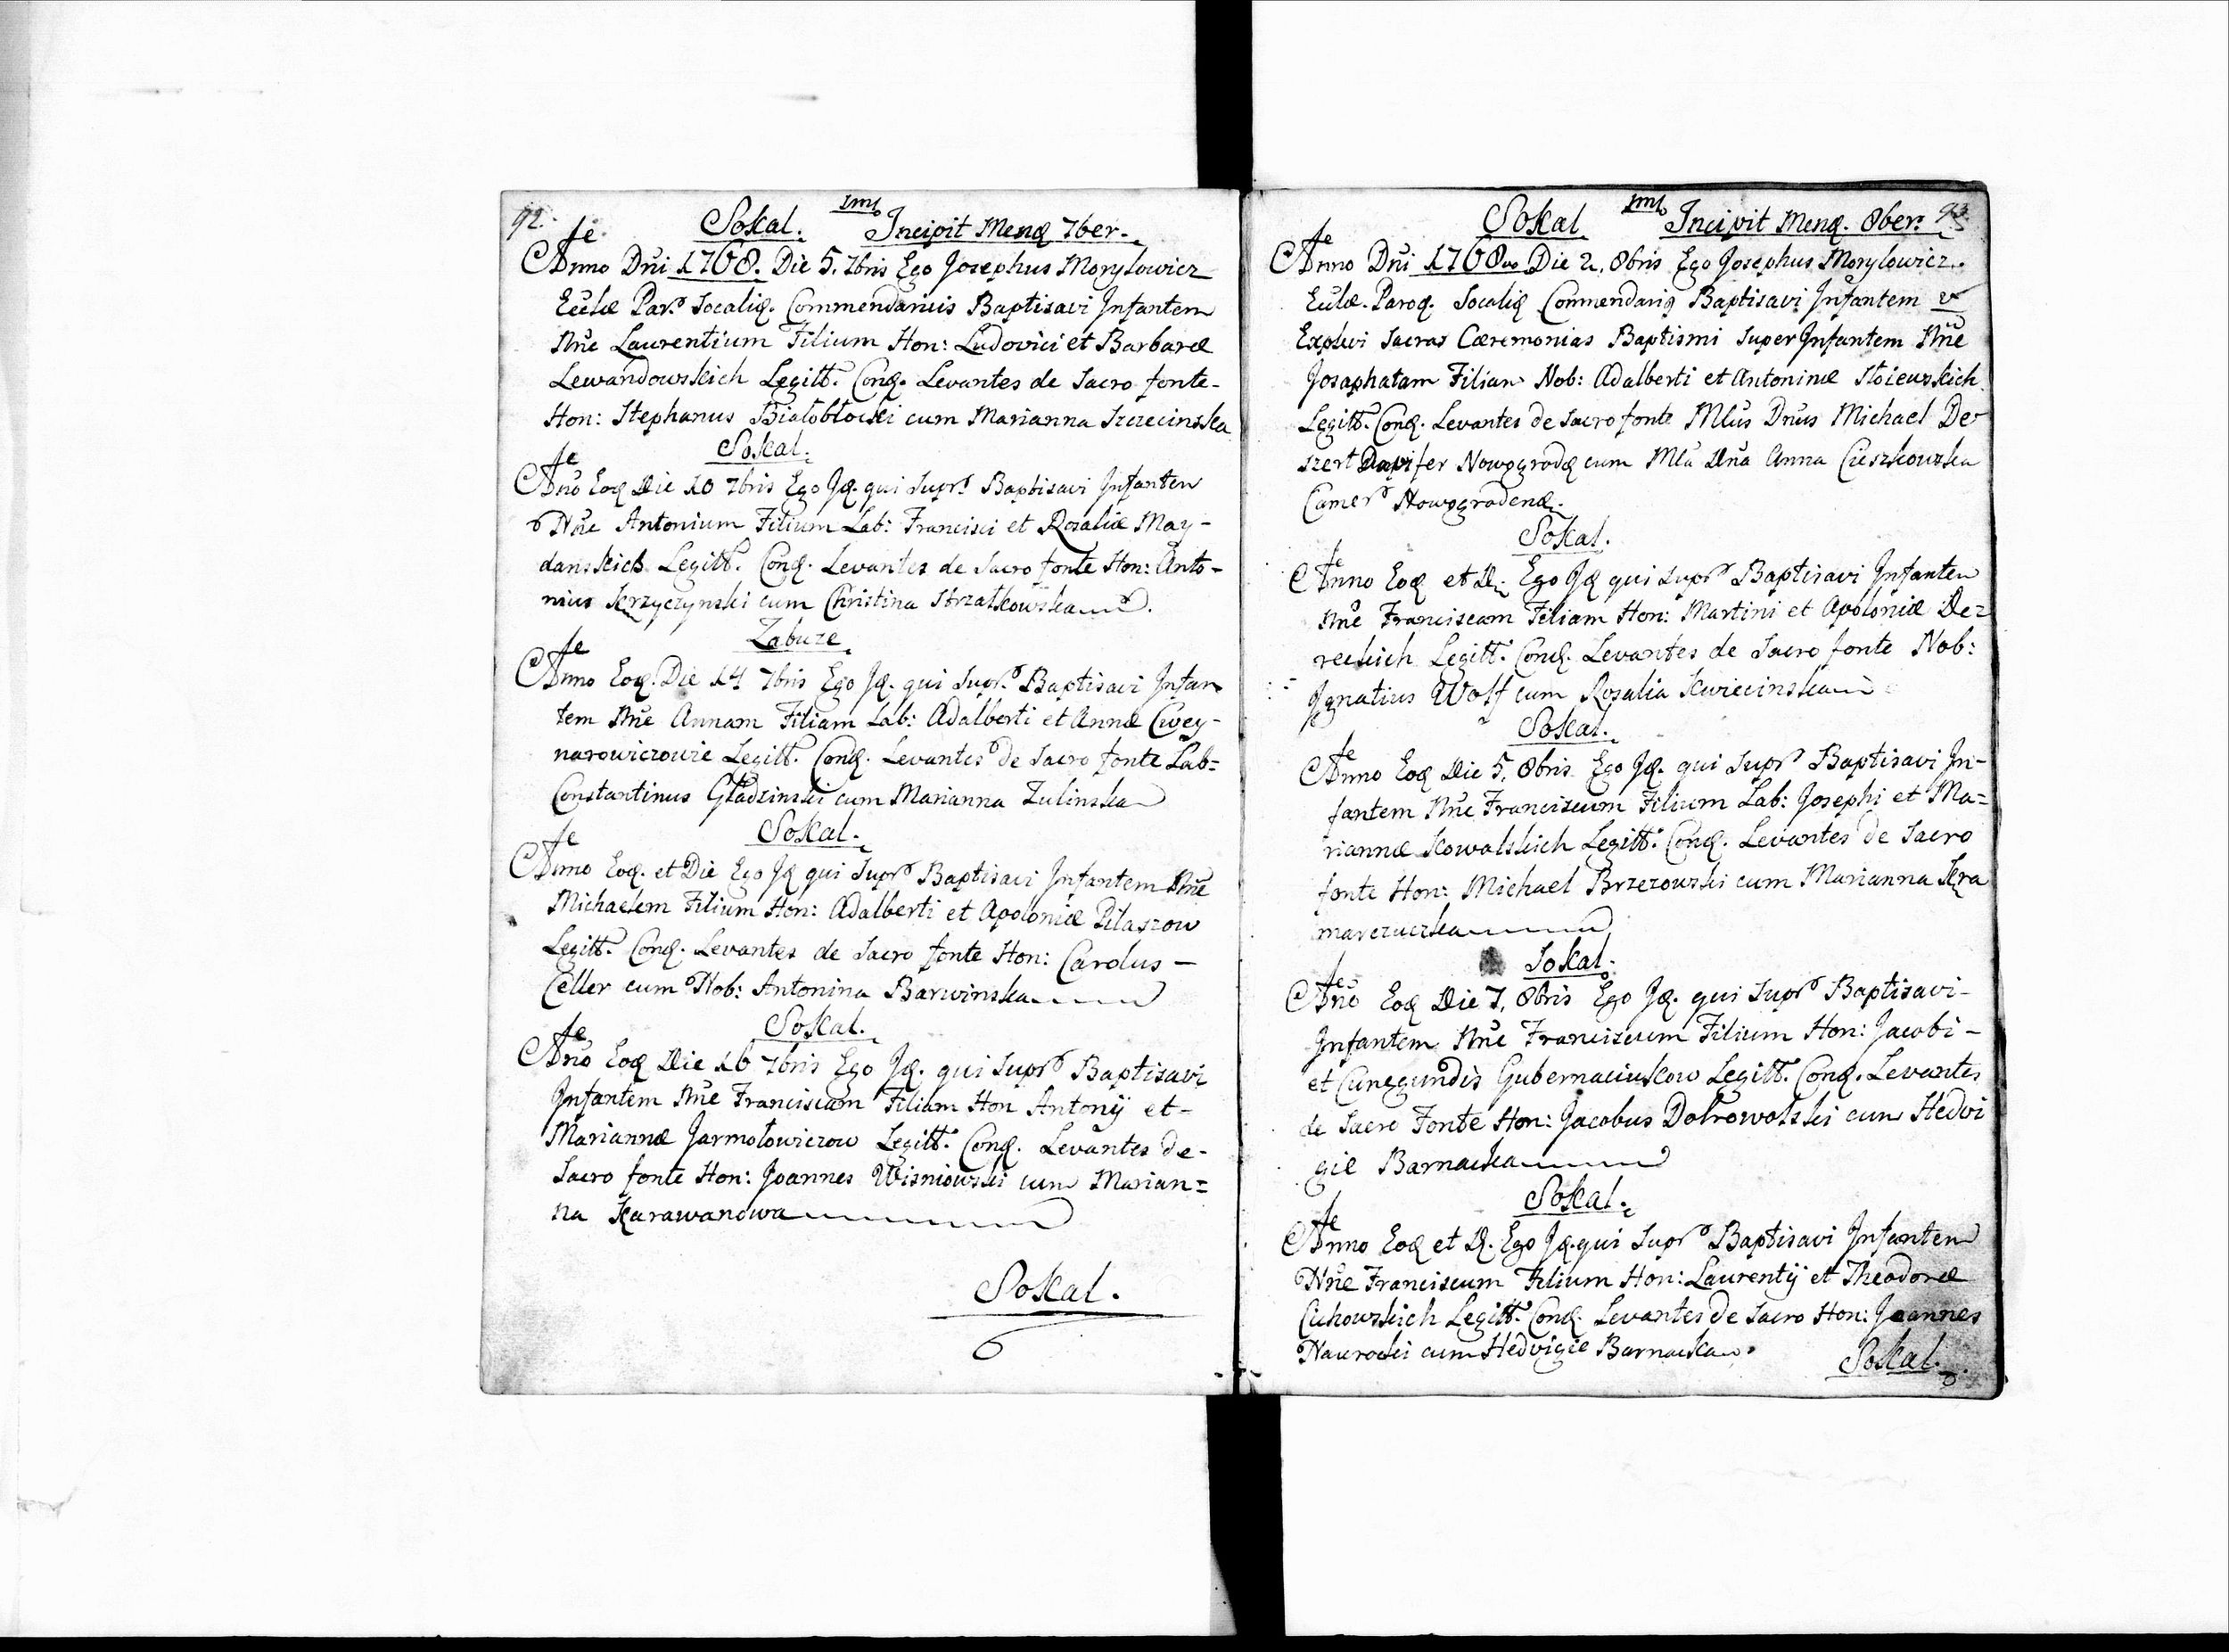 92.
Sokal. Incipit Mens 7ber.
Anno Dni 1768. Die 5. 7bris Ego Josephus Morylowicz
Ecclæ Par. Socalis. Commendarius Baptisavi Infantem
Nne Laurentium Filium Hon: Ludovici et Barbaræ
Lewandowskich Legitt. Conq. Levantes de Sacro fonte-
Hon: Stephanus Białobłocki cum Marianna Szczecinska
Sokal.
Ano Eoq Die 10 7bris Ego Jq. qui supr. Baptisavi Infantem
Nne Antonium Filium Lab: Francisci et Rozaliæ May-
danskich Legitt. Conq. Levantes de Sacro fonte Hon: Anto-
nius Krzyczynski cum Christina Strzałkowska
Zabuze
Anno Eoq. Die 14 7bris Ego Jq. qui supr. Baptisavi Infan
tem Nne Annam Filiam Lab: Adalberti et Annæ Cwey-
narowiczowie Legitt. Conq. Levantes de Sacro fonte Lab=
Constantinus Gładzinski cum Marianna Zulinska
Sokal.
Anno Eoq. et Die Ego Jq qui supr Baptisavi Infantem Nne
Michaelem Filium Hon: Adalberti et Apoloniæ Pilaszow
Legitt. Conq. Levantes de Sacro fonte Hon: Carolus -
Celler cum Nob: Antonina Barwinska
Sokal.
Ano Eoq Die 16 7bris Ego Jq. qui supr Baptisavi
Infantem Nne Franciscam Filiam Hon Antonÿ et -
Mariannæ Jarmołowiczow Legitt. Conq. Levantes de-
Sacro fonte Hon: Joannes Wisniowski cum Marian=
na Karawanowa
Sokal.
Sokal Incipit Menq. 8ber. 93.
Anno Dni 1768vo Die 2. 8bris Ego Josephus Morylowicz.
Eculæ. Paroq. Socaliq Commendariq Baptisavi Infantem
Explevi Sacras Cæremonias Baptismi super Infantem Nne
Josaphatam Filiam Nob: Adalberti et Antoninæ Stoienskich
Legitt. Conq. Levantes de Sacro fonte Mlus Dnus Michael De-
szert Dapifer Nowogrodq cum Mla Dna Anna Cieszkowska
Camer Nowogrodenq.
Sokal.
Anno Eoq et D. Ego Jq qui supr Baptisavi Infantem
Nne Franciscam Filiam Hon: Martini et Apoloniæ De=
reckich Legitt. Conq. Levantes de Sacro fonte Nob:
Ignatius Wolf cum Rosalia Kwiecinska
Sokal.
Anno Eoq Die 5. 8bris Ego Jq. qui supr Baptisavi In-
fantem Nne Franciscum Filium Lab: Josephi et Ma=
riannæ Kowalskich Legitt. Conq. Levantes de Sacro
fonte Hon: Michael Brzezowski cum Marianna Kra
marczuczka
Sokal.
Ano Eoq Die 7. 8bris Ego Jq. qui supr Baptisavi-
Infantem Nne Franciscum Filium Hon: Jacobi -
et Cunegundis Gubernaciuskow Legitt. Conq. Levantes
de Sacro Fonte Hon: Jacobus Dobrowolski cum Hedvi
gie Barnacka
Sokal.
Anno Eoq et D. Ego Jq. qui supr Baptisavi Infantem
Nne Franciscum Filium Hon: Laurentÿ et Theodoræ
Cichowskich Legitt. Conq. Levantes de Sacro Hon: Joannes
Nawrocki cum Hedvigie Barnacka.
Sokal.